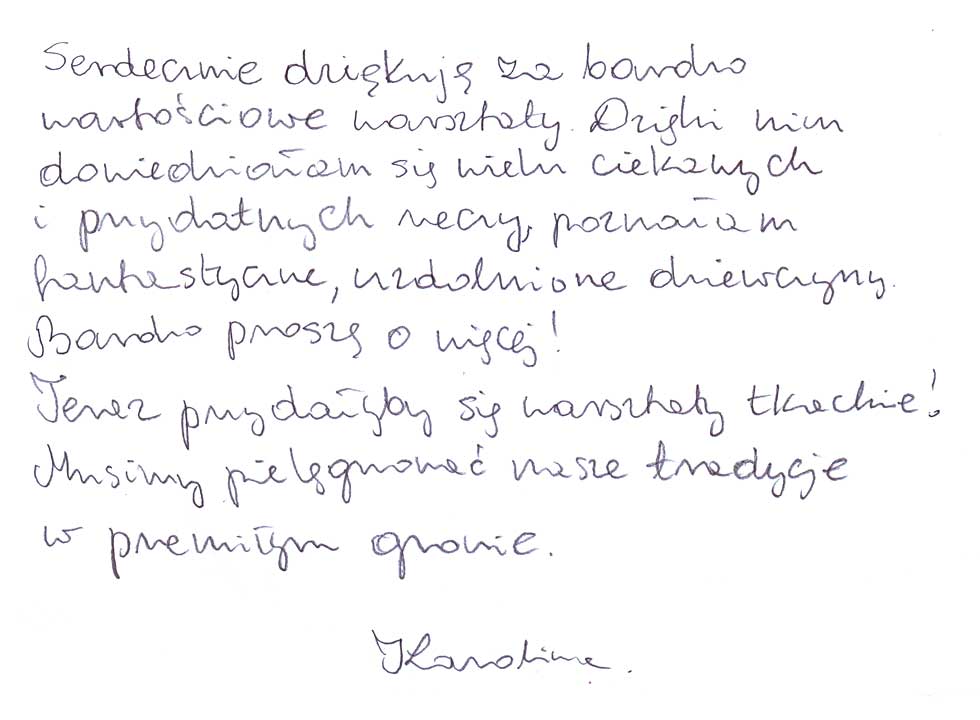 Serdecznie dziękuję za bardzo
wartościowe warsztaty. Dzięki nim
dowiedziałam się wielu ciekawych
i przydatnych rzeczy, poznałam
fantastyczne, uzdolnione dziewczyny.
Bardzo proszę o więcej!
Teraz przydałyby się warsztaty tkackie!
Musimy pielęgnować nasze tradycje
w przemiłym gronie.
Karolina.